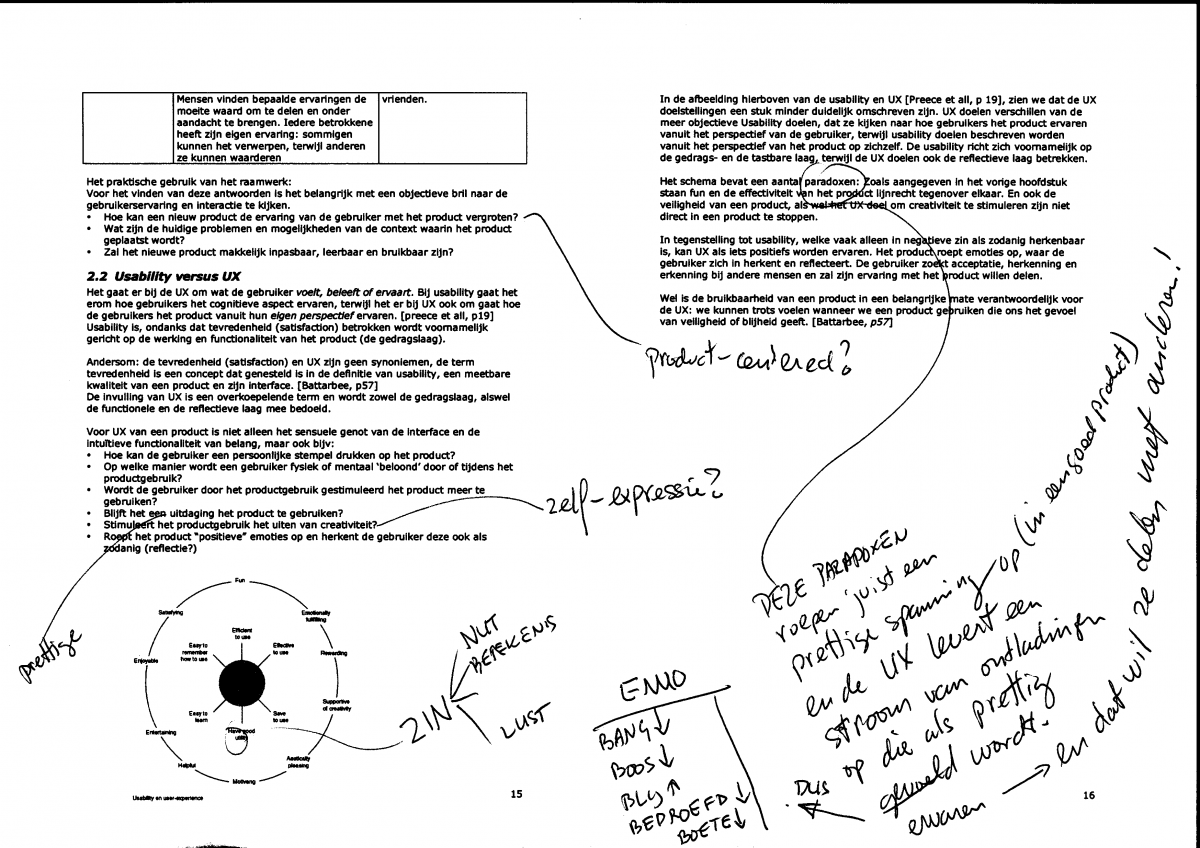 Mensen vinden bepaalde ervaringen de
moeite waard om te delen en onder
aandacht te brengen. Iedere betrokkene
heeft zijn eigen ervaring: sommigen
kunnen het verwerpen, terwijl anderen
ze kunnen waarderen
vrienden.
Het praktische gebruik van het raamwerk:
Voor het vinden van deze antwoorden is het belangrijk met een objectieve bril naar de
gebruikerservaring en interactie te kijken.
• Hoe kan een nieuw product de ervaring van de gebruiker met het product vergroten?
• Wat zijn de huidige problemen en mogelijkheden van de context waarin het product
geplaatst wordt?
• Zal het nieuwe product makkelijk inpasbaar, leerbaar en bruikbaar zijn?
2.2 Usability versus UX
Het gaat er bij de UX om wat de gebruiker voelt, beleeft of ervaart. Bij usability gaat het
erom hoe gebruikers het cognitieve aspect ervaren, terwijl het er bij UX ook om gaat hoe
de gebruikers het product vanuit hun eigen perspectief ervaren. [preece et all, p19]
Usability is, ondanks dat tevredenheid (satisfaction) betrokken wordt voornamelijk
gericht op de werking en functionaliteit van het product (de gedragslaag).
Andersom: de tevredenheid (satisfaction) en UX zijn geen synoniemen, de term
tevredenheid is een concept dat genesteld is in de definitie van usability, een meetbare
kwaliteit van een product en zijn interface. [Battarbee, p57]
De invulling van UX is een overkoepelende term en wordt zowel de gedragslaag, alswel
de functionele en de reflectieve laag mee bedoeld.
Voor UX van een product is niet alleen het sensuele genot van de interface en de
intuïtieve functionaliteit van belang, maar ook bijv:
• Hoe kan de gebruiker een persoonlijke stempel drukken op het product?
• Op welke manier wordt een gebruiker fysiek of mentaal 'beloond' door of tijdens het
productgebruik?
• Wordt de gebruiker door het productgebruik gestimuleerd het product meer te
gebruiken?
• Blijft het een uitdaging het product te gebruiken?
• Stimuleert het productgebruik het uiten van creativiteit?
• Roept het product "positieve" emoties op en herkent de gebruiker deze ook als
zodanig (reflectie?)
prettige
Fun
Satisfying
Emotionally
fulfilling
Efficient
to use
Easy to
remember
how to use
Effective
to use
Enjoyable
Rewarding
Supportive
of creativity
Easy to
learn
Save
to use
Have good
utility
Entertaining
Aestically
pleasing
Helpful
Motiveng
Usability en user-experience
ZIN
NUT
BETEKENIS
LUST
15
In de afbeelding hierboven van de usability en UX [Preece et all, p 19], zien we dat de UX
doelstellingen een stuk minder duidelijk omschreven zijn. UX doelen verschillen van de
meer objectieve Usability doelen, dat ze kijken naar hoe gebruikers het product ervaren
vanuit het perspectief van de gebruiker, terwijl usability doelen beschreven worden
vanuit het perspectief van het product op zichzelf. De usability richt zich voornamelijk op
de gedrags- en de tastbare laag, terwijl de UX doelen ook de reflectieve laag betrekken.
Het schema bevat een aantal paradoxen: Zoals aangegeven in het vorige hoofdstuk
staan fun en de effectiviteit van het product lijnrecht tegenover elkaar. En ook de
veiligheid van een product, als wel het UX doel om creativiteit te stimuleren zijn niet
direct in een product te stoppen.
In tegenstelling tot usability, welke vaak alleen in negatieve zin als zodanig herkenbaar
is, kan UX als iets positiefs worden ervaren. Het product roept emoties op, waar de
gebruiker zich in herkent en reflecteert. De gebruiker zoekt acceptatie, herkenning en
erkenning bij andere mensen en zal zijn ervaring met het product willen delen.
Wel is de bruikbaarheid van een product in een belangrijke mate verantwoordelijk voor
de UX: we kunnen trots voelen wanneer we een product gebruiken die ons het gevoel
van veiligheid of blijheid geeft. [Battarbee, p57]
product-centered?
zelf-expressie?
DEZE PARADOXEN
roepen juist een
prettige spanning op (in een goed product)
en de UX levert een
stroom van ontladingen
op die als prettig
gevoeld wordt.
ervaren → en dat wil ze delen met anderen!
Dus
EMO
BANG ↓
BOOS ↓
BLIJ ↑
BEDROEFD ↓
BOETE ↓
16